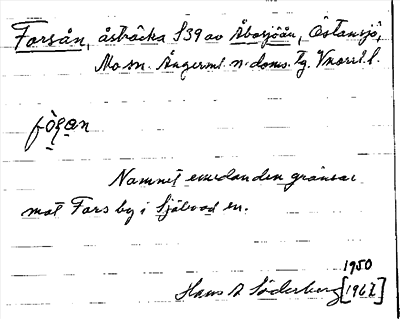 Forsån, åsträcka S39 av Åbosjöån, Östansjö,
Mo sn. Ångerml. n. doms. Tg. Vnorrl. l.
Namnet emedan den gränsar
mot Fors by i Själevad sn.
1950
Hans A Söderberg [1962]